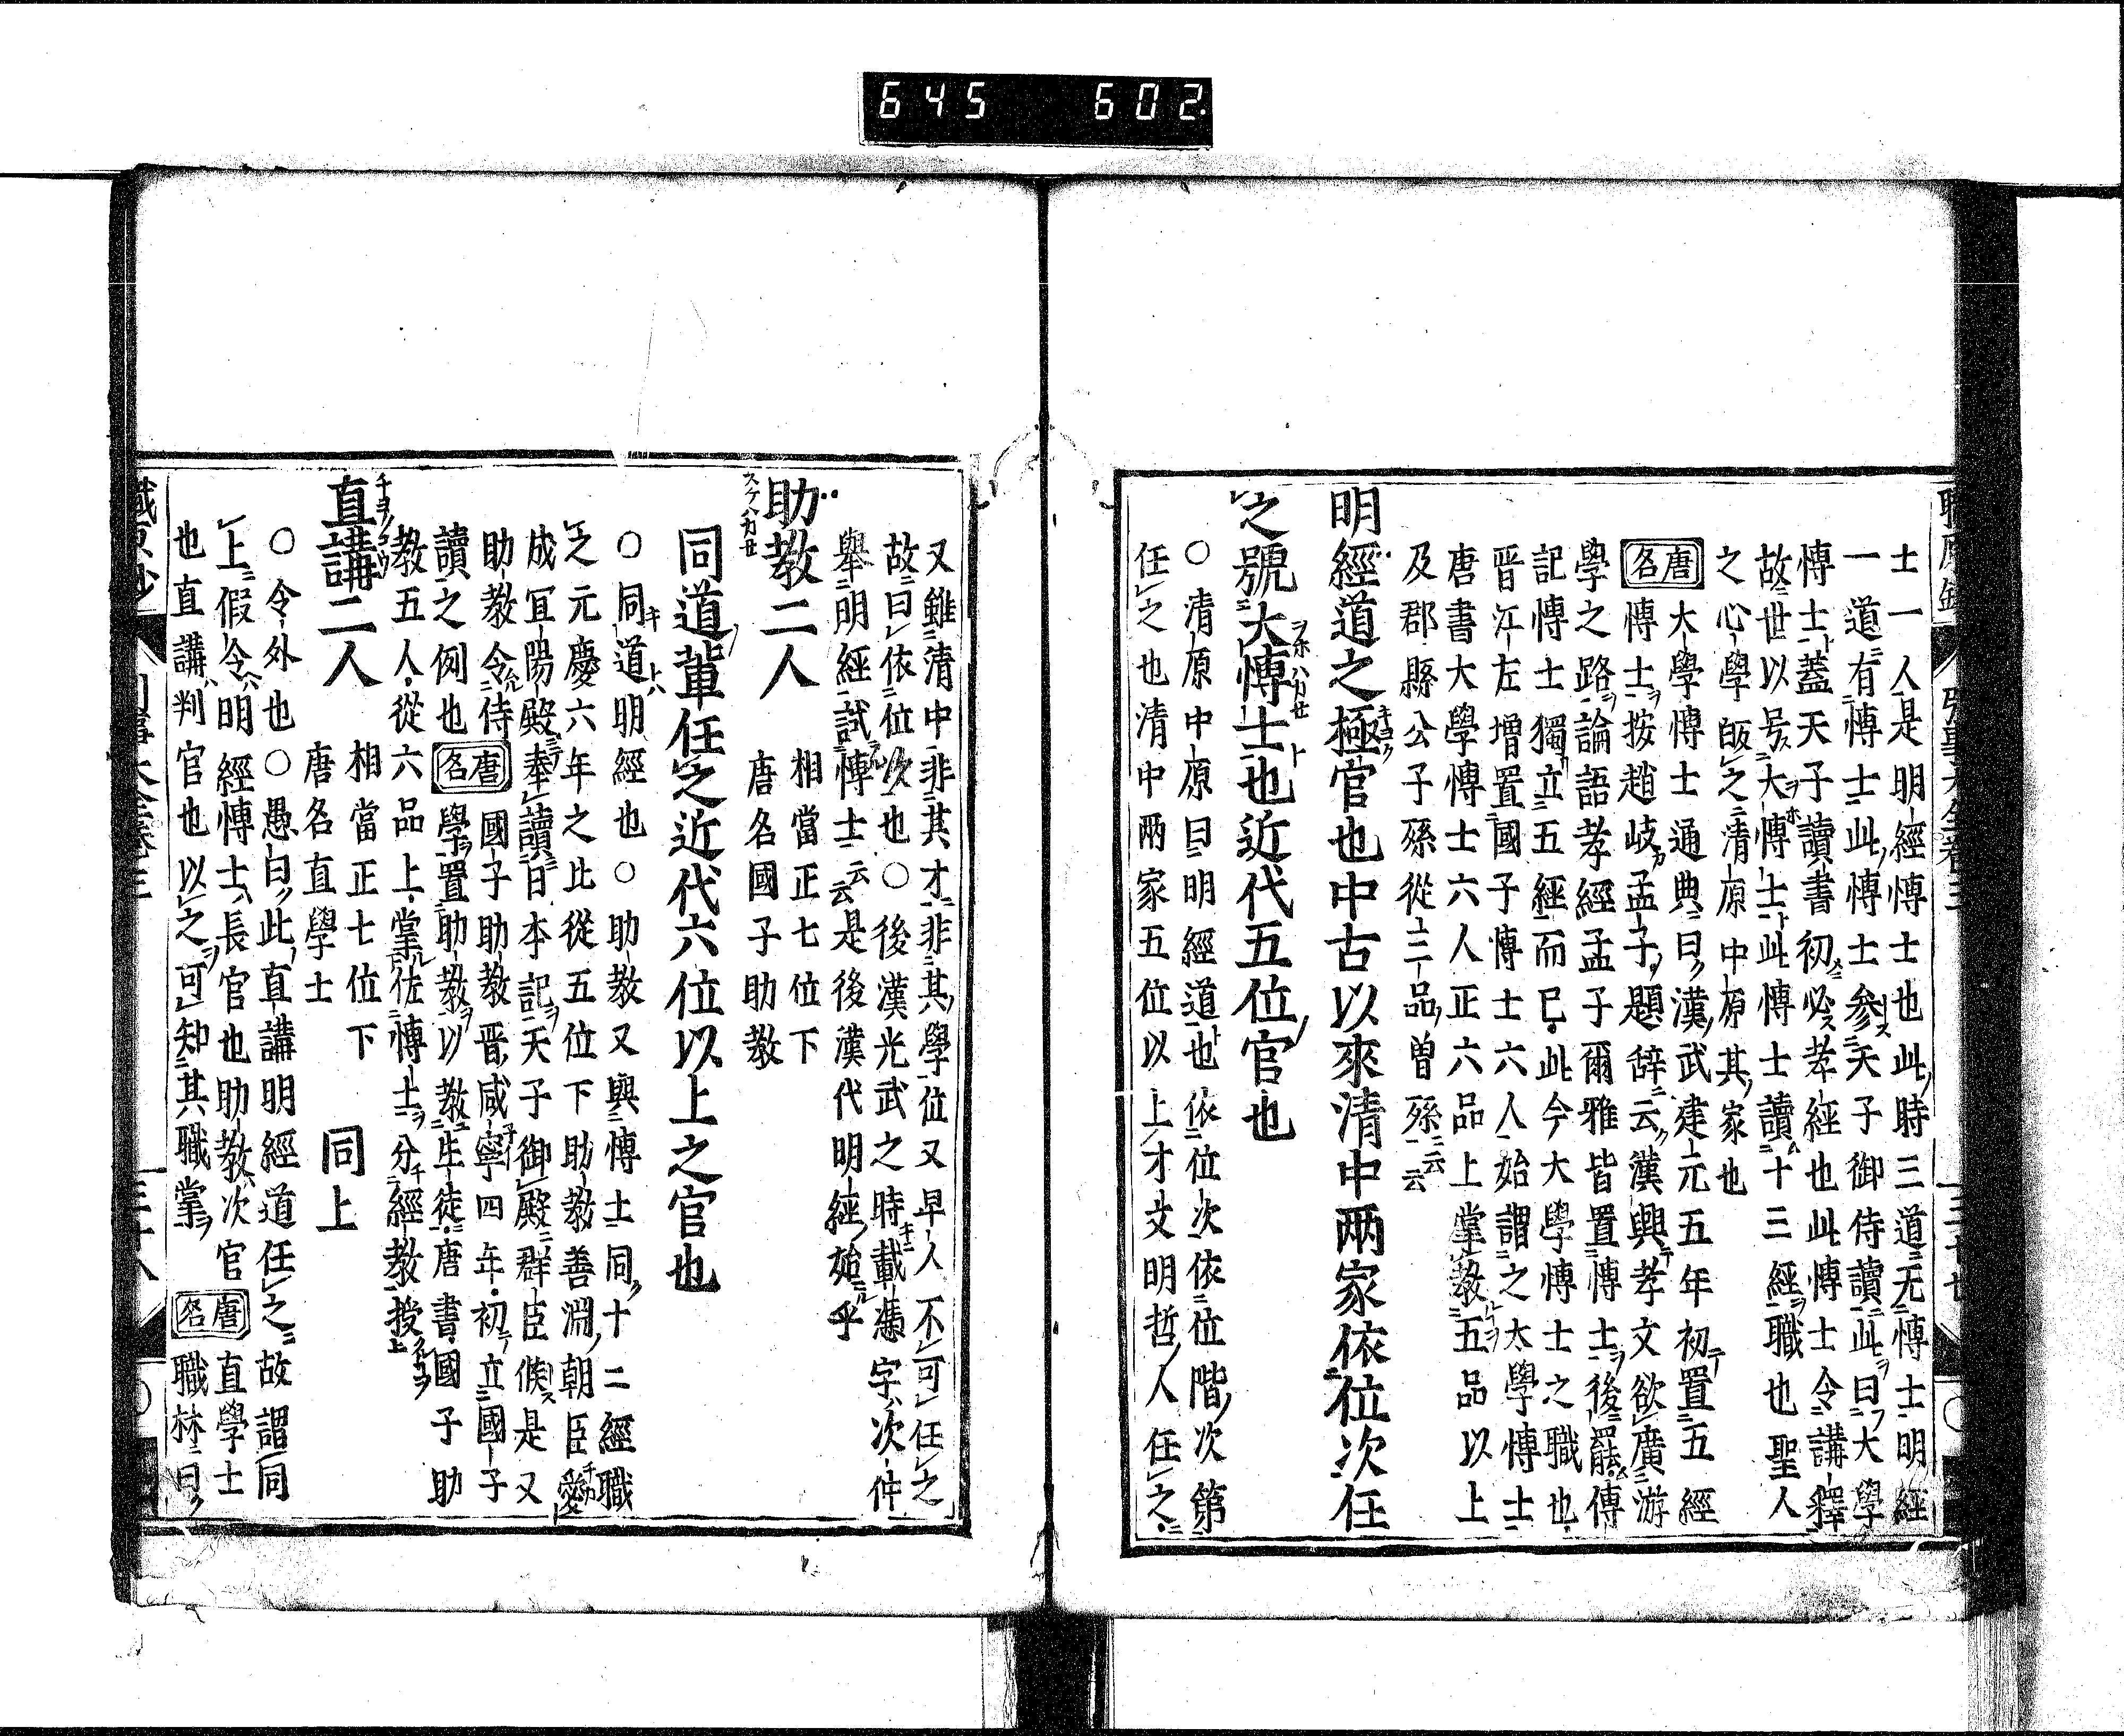 645 602
士一人是明經博士也此時三道无博士明經
一道有博士此博士参天子御侍讀此曰大學
博士蓋天子讀書初必孝經也此博士令講釋
故世以号大博士此博士讀十三經職也聖人
之心學皈之清原中原其家也
唐名 大學博士通典曰漢武建元五年初置五經
博士按趙岐孟子題辞云漢興孝文欲廣游
學之路論語孝經孟子爾雅皆置博士後罷傳
記博士獨立五經而已此今大學博士之職也
晋江左増置國子博士六人始謂之太學博士
唐書大學博士六人正六品上掌教五品以上
及郡縣公子孫從三品曽孫云云
明經道之極官也中古以來清中兩家依位次任
之號大博士也近代五位官也
○清原中原曰明經道也依位次依位階次第
任之也清中兩家五位以上才文明哲人任之
又雖清中非其才非其學位又早人不可任之
故曰依位次也○後漢光武之時載憑字次仲
舉明經試博士云云是後漢代明經始乎
助教二人 相當正七位下 唐名國子助教
スケハカセ
同道輩任之近代六位以上之官也
○同道明經也○助教又與博士同十二經職
之元慶六年之比從五位下助教善淵朝臣愛
成冝陽殿奉讀日本記天子御殿群臣候是又
助教令侍讀之例也 唐名 國子助教晋咸寧四年初立國子
學置助教以教生徒唐書國子助
教五人從六品上掌佐博士分經教授
直講二人 相當正七位下 唐名直學士 同上
○令外也○愚曰此直講明經道任之故謂同
上假令明經博士長官也助教次官
也直講判官也以之可知其職掌 唐名 直學士職林曰